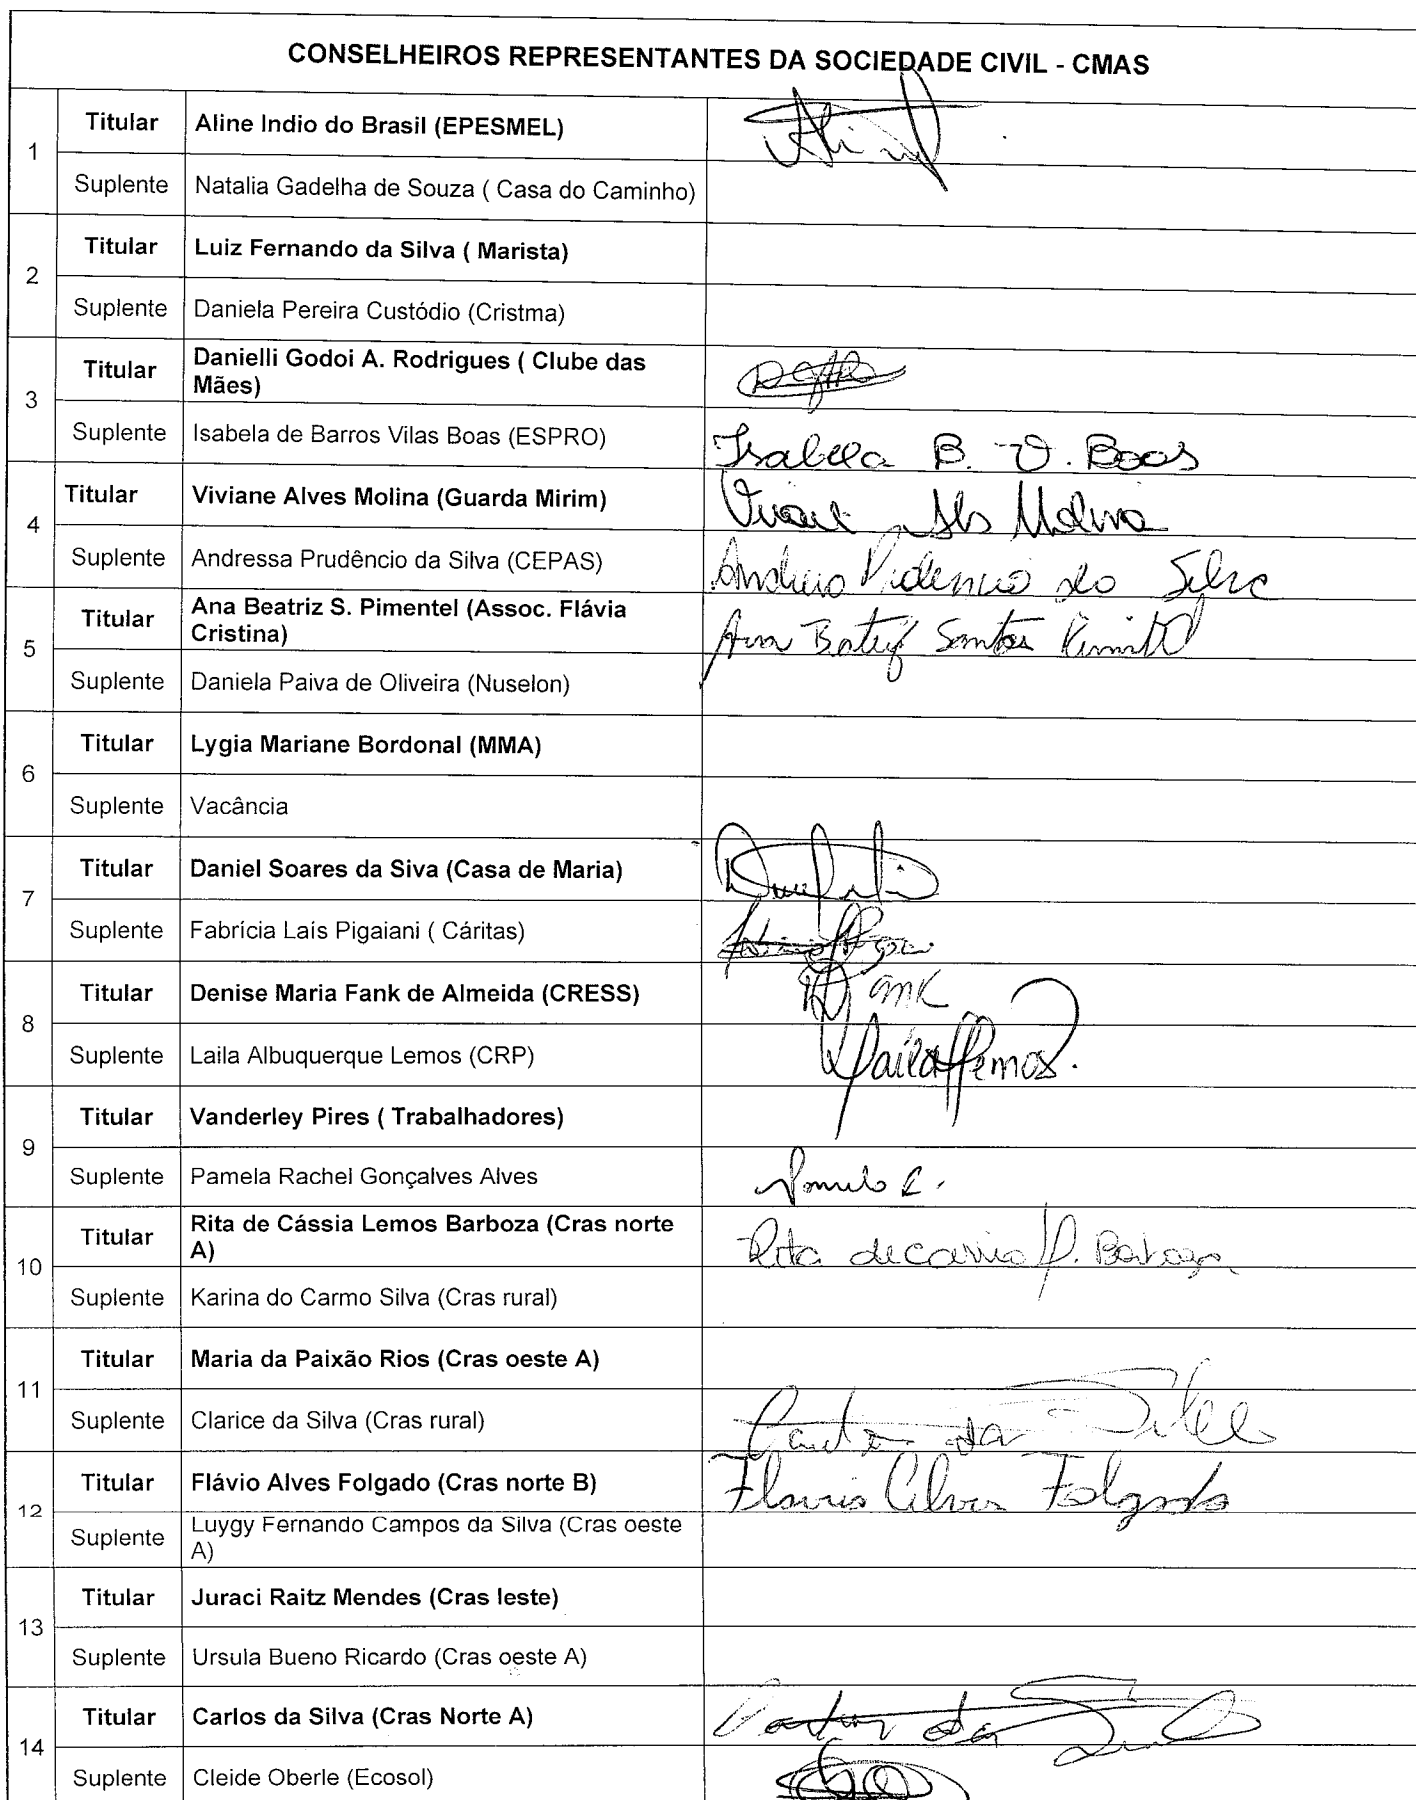 CONSELHEIROS REPRESENTANTES DA SOCIEDADE CIVIL - CMAS
1
Titular Aline Indio do Brasil (EPESMEL)
Suplente Natalia Gadelha de Souza ( Casa do Caminho)
2
Titular Luiz Fernando da Silva ( Marista)
Suplente Daniela Pereira Custódio (Cristma)
3
Titular Danielli Godoi A. Rodrigues ( Clube das
Mães)
Suplente Isabela de Barros Vilas Boas (ESPRO) Isabela B. V. Boas
4
Titular Viviane Alves Molina (Guarda Mirim) Molina
Suplente Andressa Prudêncio da Silva (CEPAS) Silva
5
Titular Ana Beatriz S. Pimentel (Assoc. Flávia
Cristina) Ana Santos
Suplente Daniela Paiva de Oliveira (Nuselon)
6
Titular Lygia Mariane Bordonal (MMA)
Suplente Vacância
7
Titular Daniel Soares da Siva (Casa de Maria)
Suplente Fabrícia Laís Pigaiani ( Cáritas)
8
Titular Denise Maria Fank de Almeida (CRESS)
Suplente Laila Albuquerque Lemos (CRP) Laila Lemos.
9
Titular Vanderley Pires ( Trabalhadores)
Suplente Pamela Rachel Gonçalves Alves
10
Titular Rita de Cássia Lemos Barboza (Cras norte
A) Rita de
Suplente Karina do Carmo Silva (Cras rural)
11
Titular Maria da Paixão Rios (Cras oeste A)
Suplente Clarice da Silva (Cras rural) da
12
Titular Flávio Alves Folgado (Cras norte B) Flavio Alves Folgado
Suplente Luygy Fernando Campos da Silva (Cras oeste
A)
13
Titular Juraci Raitz Mendes (Cras leste)
Suplente Ursula Bueno Ricardo (Cras oeste A)
14
Titular Carlos da Silva (Cras Norte A) da
Suplente Cleide Oberle (Ecosol)